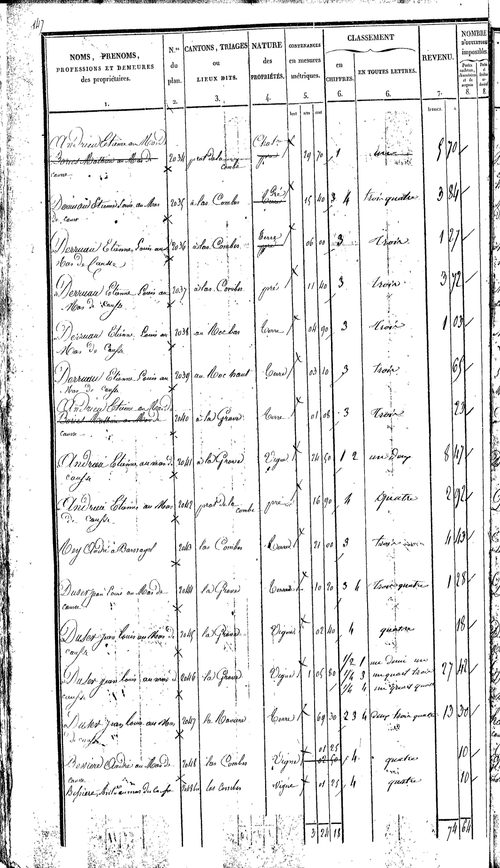 447
NOMS, PRENOMS,
PROFESSIONS ET DEMEURES
des propriétaires.
1.
N.os
du
plan.
2.
CANTONS, TRIAGES
ou
LIEUX DITS.
3.
NATURE
des
PROPRIÉTÉS.
4.
CONTENANCES
en mesures
métriques.
5.
CLASSEMENT
en
CHIFFRES.
6.
EN TOUTES LETTRES.
6.
REVENU.
7.
NOMBRE
D'OUVERTURES
imposables.
8.
8.
Andrieu Etienne au Mas de
causse 2034 prat de la combe 29 70 1 une 5 70
Derruau Etienne Louis au Mas
de causse 2035 à las Combes Pré 15 40 3 4 trois quatre 3 84
Derruau Etienne Louis au
Mas de Causse 2036 à las Combes terre 06 00 3 trois 1 27
Derruau Etienne Louis au
Mas de Causse 2037 à las Combes pré 11 40 3 trois 3 72
Derruau Etienne Louis au
Mas de Causse 2038 au Roc bas terre 04 90 3 trois 1 03
Derruau Etienne Louis au
Mas de Causse 2039 au Roc haut terre 03 10 3 trois 65
Andrieu Etienne au Mas de
causse 2040 à la Grave terre 01 08 3 trois 23
Andrieu Etienne au mas de
causse 2041 à la Grave Vigne 24 50 1 2 un deux 8 47
Andrieu Etienne au Mas
de causse 2042 prat de la combe pré 16 90 4 quatre 2 92
Rey André à 2043 las Combes terre 21 00 3 trois 4 43
jean Louis au Mas de
causse 2044 la Grave terre 10 20 3 4 trois quatre 1 28
jean Louis au Mas de
causse 2045 la Grave Vigne 02 40 4 quatre 18
jean Louis au mas de
causse 2046 la Grave Vigne 1 05 80 1/2 1 un demi un 27 42
1/4 3 un quart trois
1/4 4 un quart quatre
jean Louis au Mas
de causse 2047 terre 69 30 2 3 4 deux trois quatre 13 30
Bessiere André au Mas de
causse 2048 las Combes Vigne 01 25 4 quatre 10
Bessiere au mas du causse 2048 las Combes vigne 01 25 4 quatre 10
3 24 18 74 64